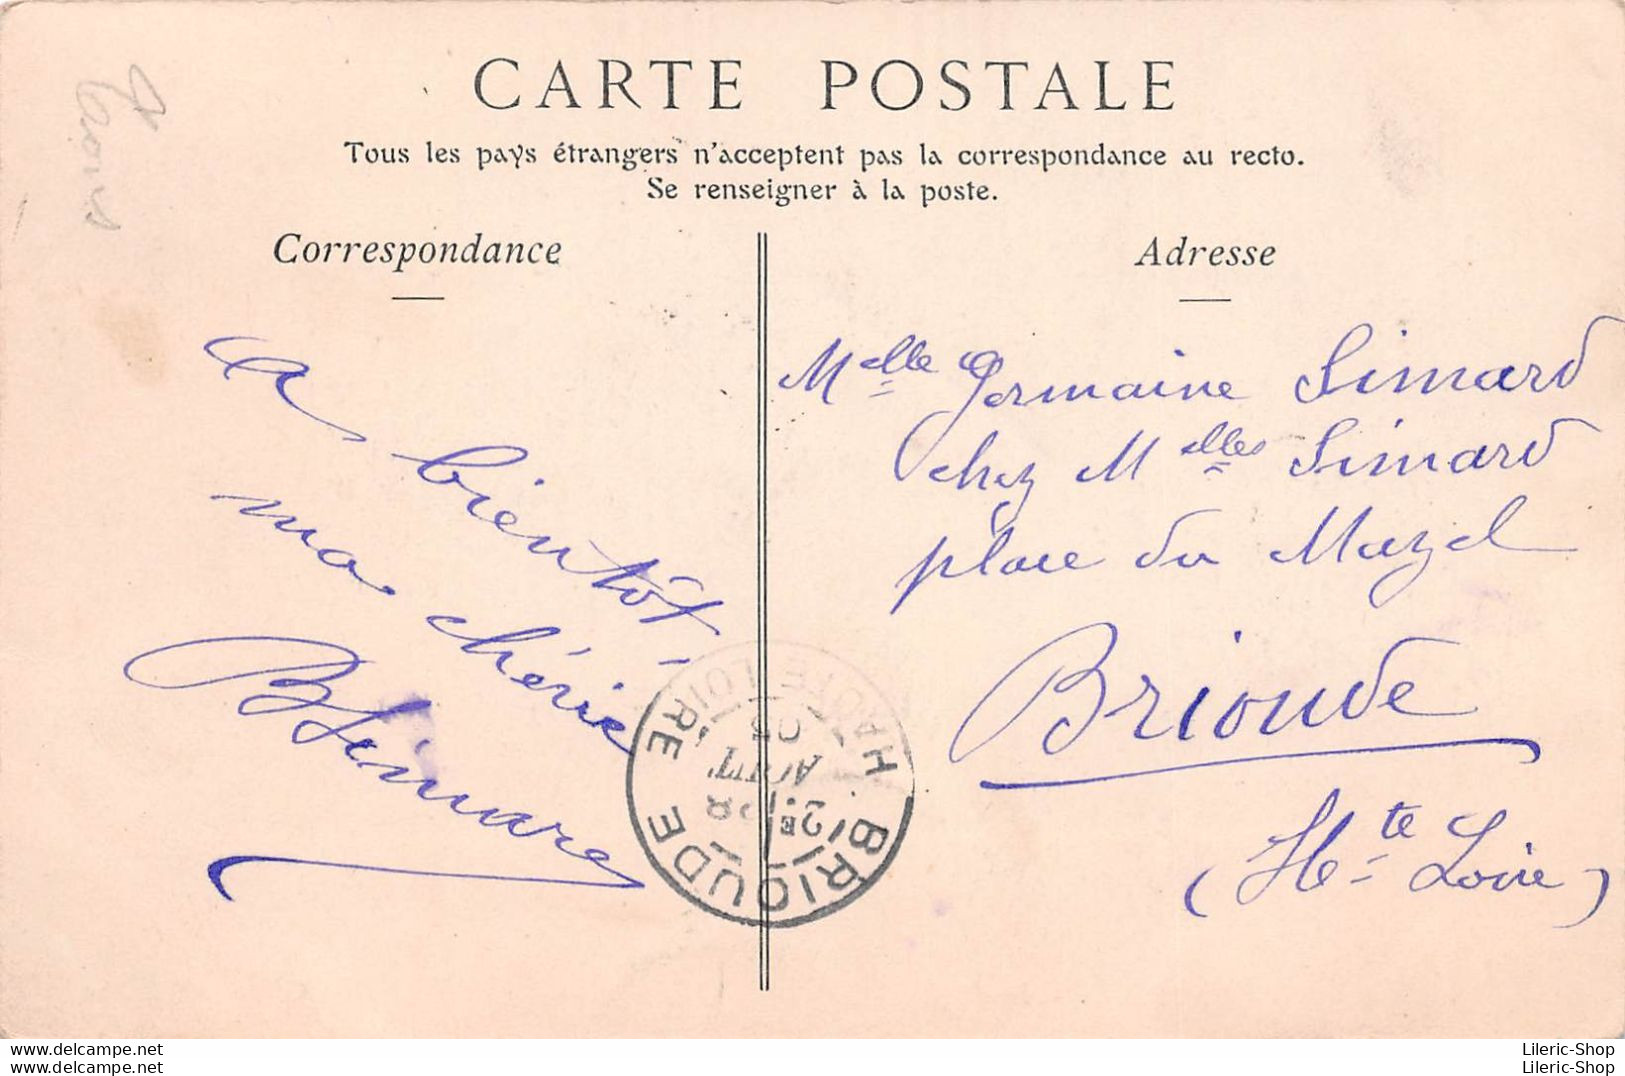 CARTE POSTALE
Tous les pays étrangers n'acceptent pas la correspondance au recto.
Se renseigner à la poste.
Correspondance
a bientôt,
ma chérie
BSimard
Adresse
Melle Germaine Simard
chez Melles Simard
place du Mazel
Brioude
(Hte Loire)
BRIOUDE
HAUTE LOIRE
2E
AOUT
05
www.delcampe.net
Lileric-Shop
www.delcampe.net
Lileric-Shop